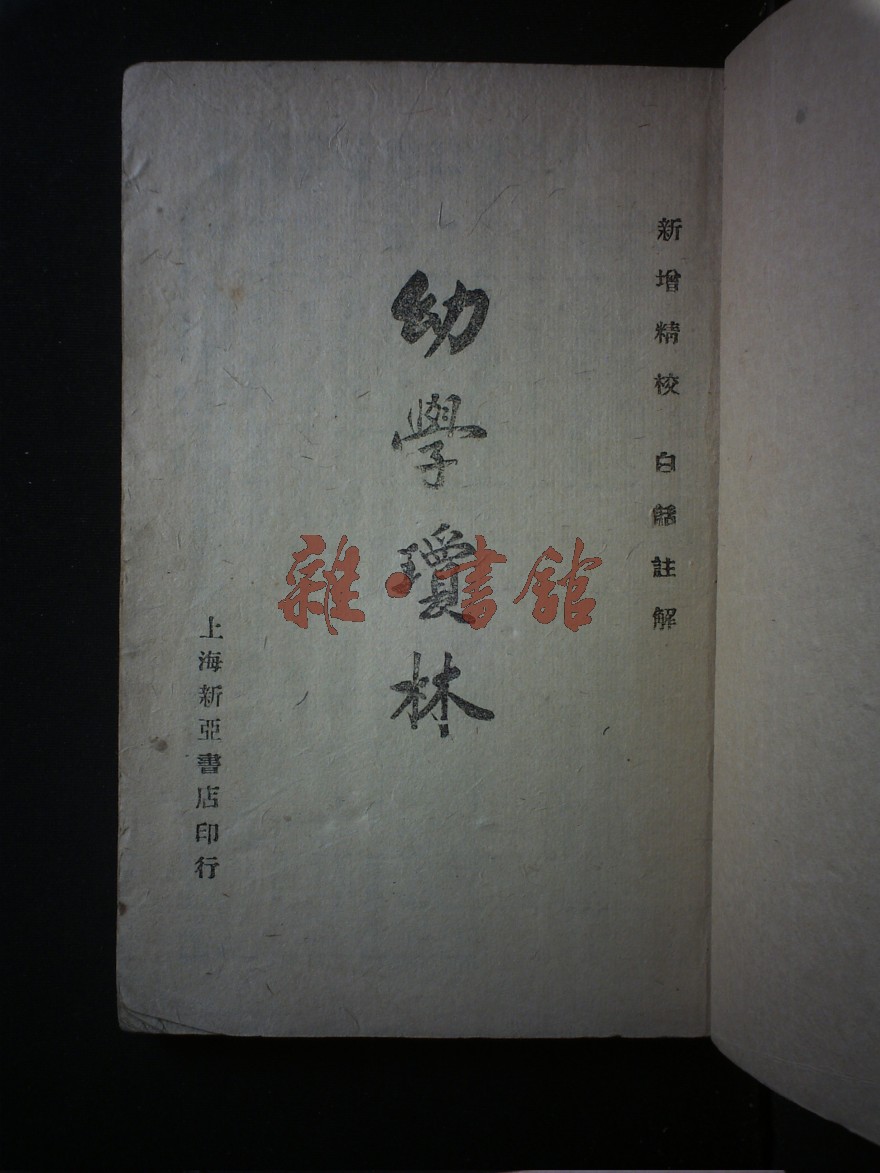 新增精校 白話註解
幼學瓊林
上海新亞書店印行
雜·書館